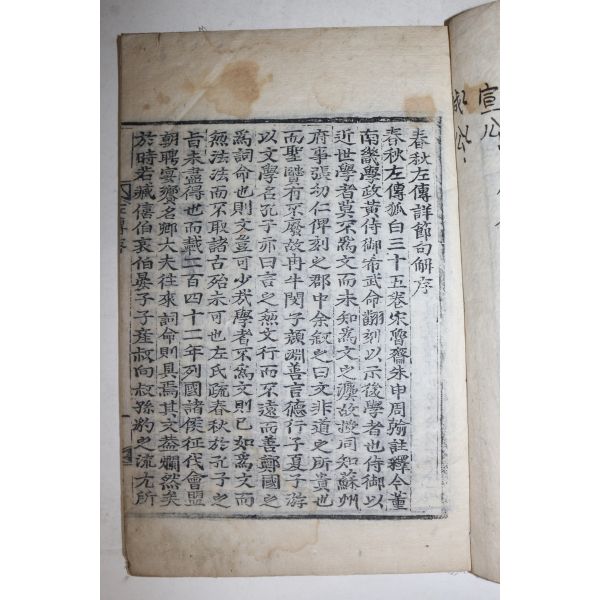 宣公
成公
春秋左傳詳節句解序
春秋左傳狐白三十五卷宋魯齋朱申周翰註釋今董
南畿學政黃侍御希武命翻刻以示後學者也侍御以
近世學者莫不爲文而未知爲文之灋故授同知蘇州
府事張幼仁俾刻之郡中余叙之曰文非道之所貴也
而聖賢有不廢故冉牛閔子顏淵善言德行子夏子游
以文學名孔子亦曰言之無文行而不遠而善鄭國之
爲詞命也則文豈可少哉學者不爲文則已如爲文而
無法法而不取諸古殆未可也左氏疏春秋於孔子之
旨未盡得也而載二百四十二年列國諸侯征伐會盟
朝聘宴饗名卿大夫往來詞命則具焉其文蓋爛然矣
於時若臧僖伯哀伯晏子子產叔向叔孫豹之流尤所